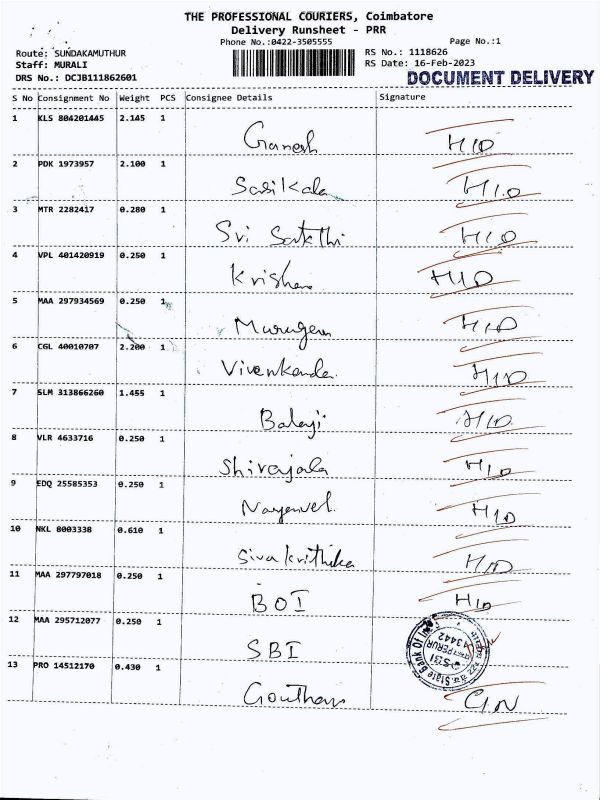 THE PROFESSIONAL COURIERS, Coimbatore
Delivery Runsheet - PRR
Phone No.:0422-3505555
Page No.:1
Route: SUNDAKAMUTHUR
RS No.: 1118626
Staff: MURALI
RS Date: 16-Feb-2023
DRS No.: DCJB111862601
DOCUMENT DELIVERY
S No Consignment No Weight PCS Consignee Details Signature
1 KLS 804201445 2.145 1 Ganesh H10
2 PDK 1973957 2.100 1 Sasikala H10
3 MTR 2282417 0.280 1 Sri Sakthi H10
4 VPL 401420919 0.250 1 Krishna H10
5 MAA 297934569 0.250 1 Murugan H10
6 CGL 40010707 2.200 1 Vivenkanda H10
7 SLM 313866260 1.455 1 Balaji H10
8 VLR 4633716 0.250 1 H10
9 EDQ 25585353 0.250 1 H10
10 NKL 8003338 0.610 1 Sivakrithika H10
11 MAA 297797018 0.250 1 BOI H10
12 MAA 295712077 0.250 1 SBI
State Bank Of
SBI
PERUR
13442
13 PRO 14512170 0.430 1 Goutham GN